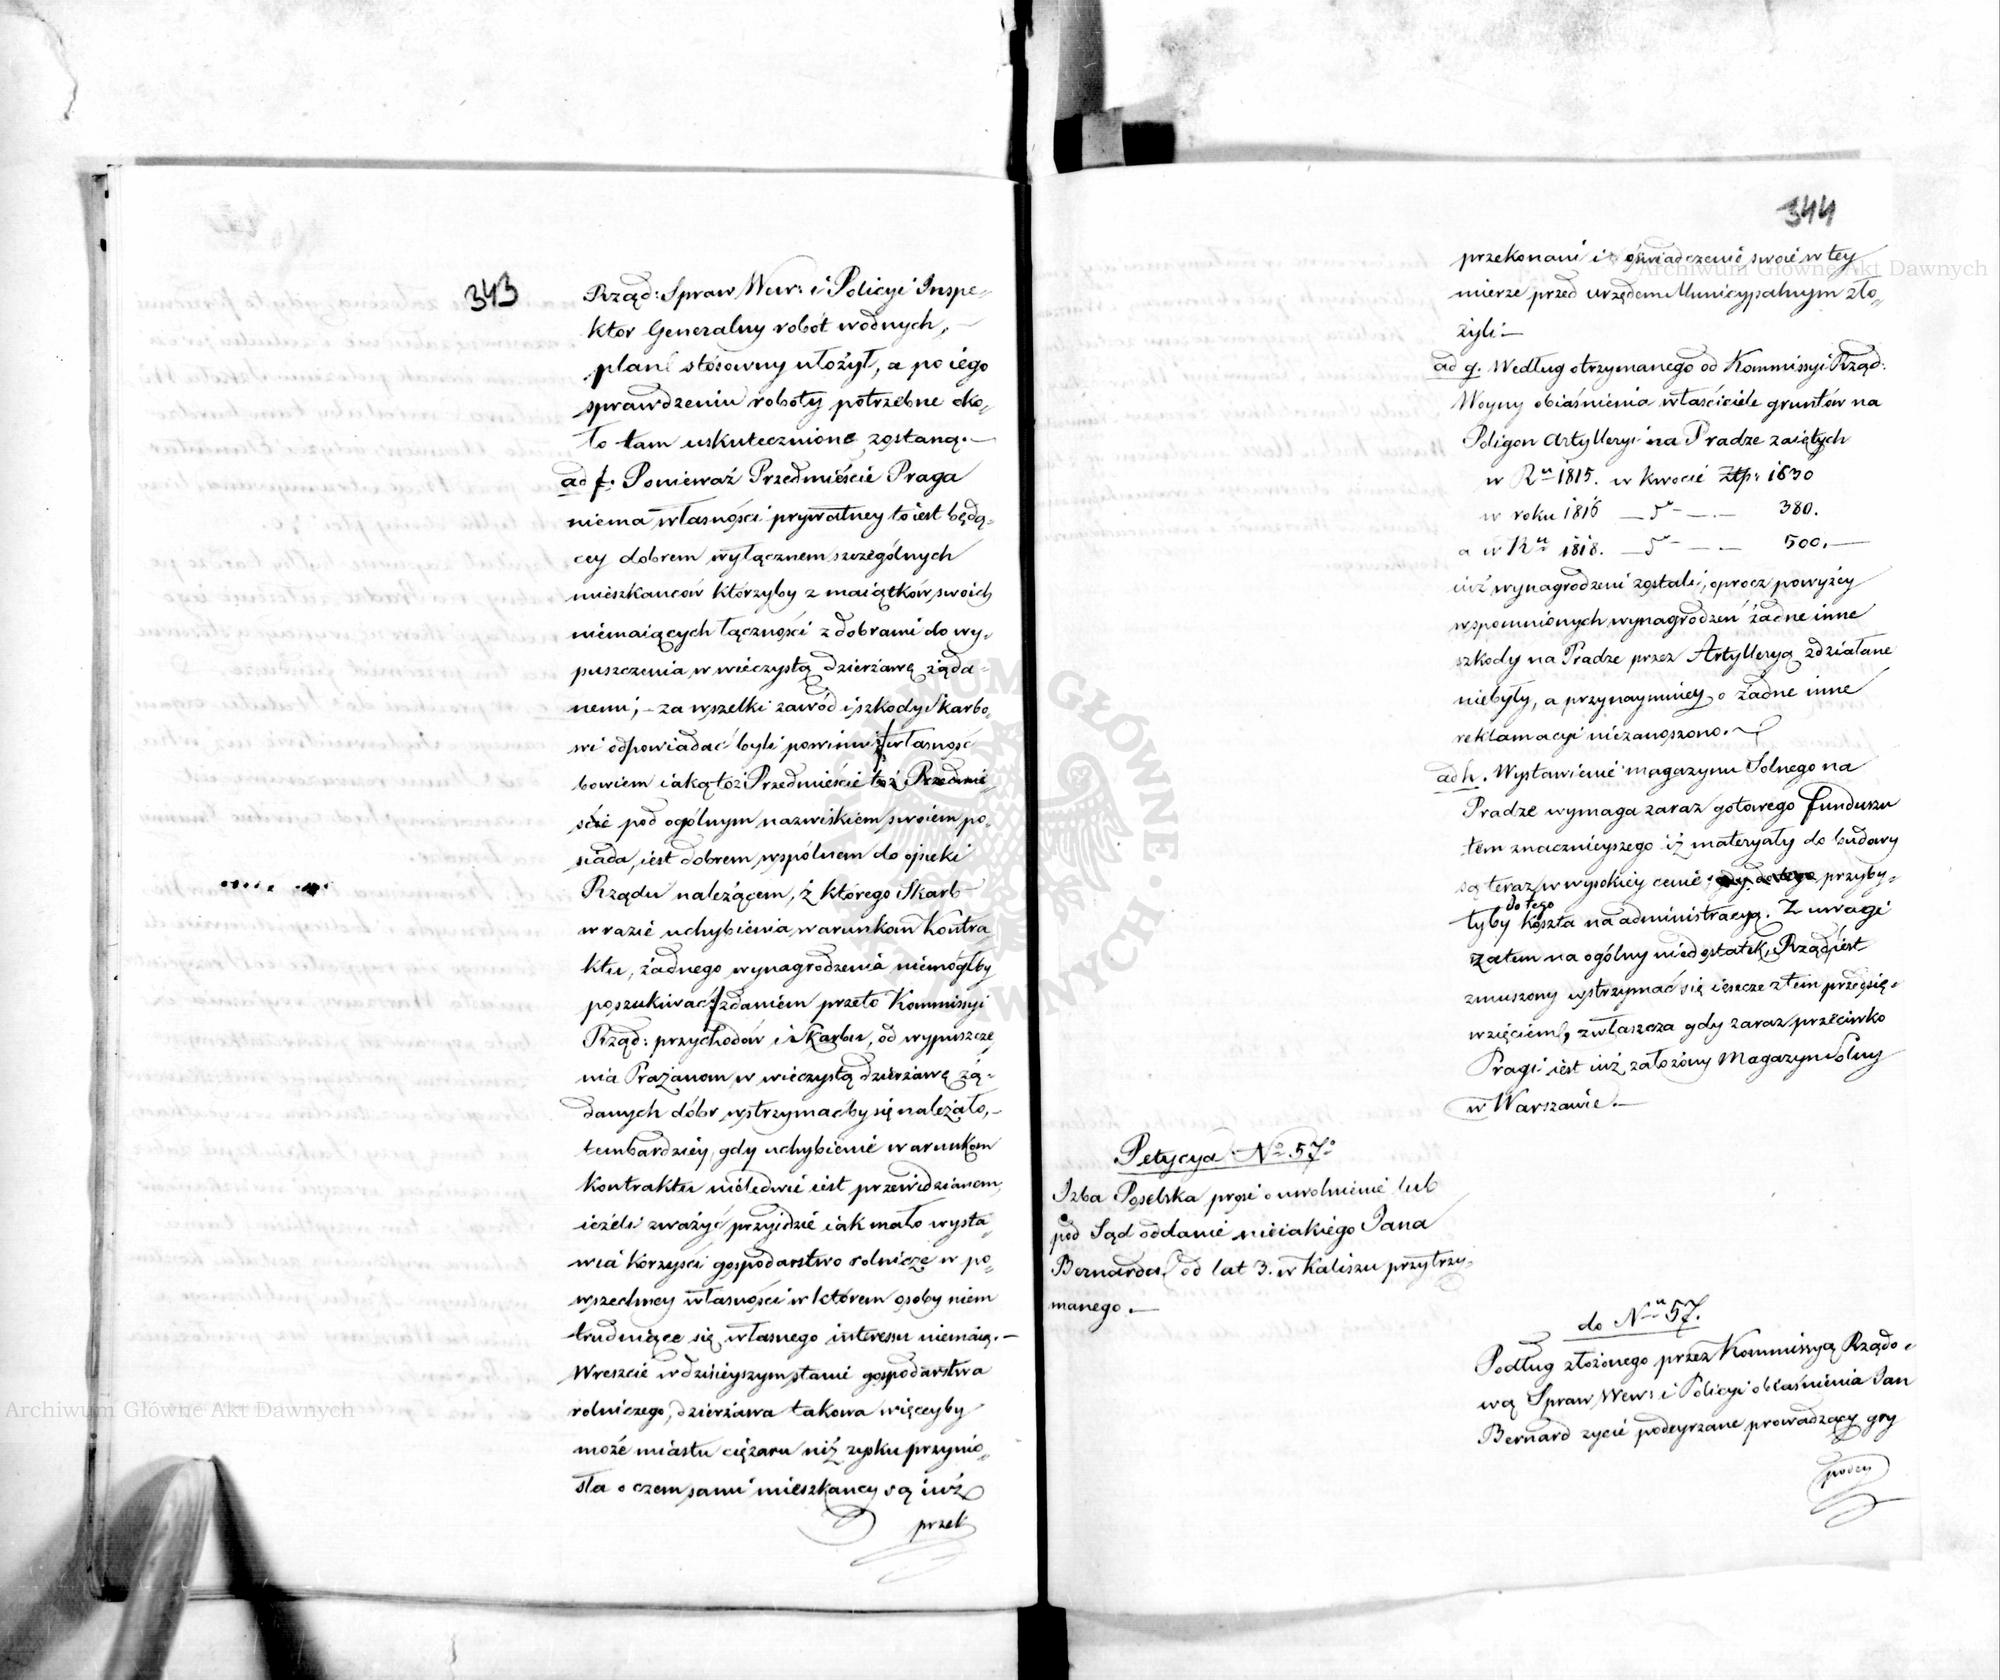 343
Rząd: Spraw Wew: i Policyi Inspe-
ktor Generalny robót wodnych,
plan stósowny ułożył, a po iego
sprawdzeniu roboty potrzebne oko-
ło tam uskutecznione zostaną.—
ad f. Ponieważ Przedmieście Praga
niema własności prywatney to iest będą-
cey dobrem wyłącznem szczególnych
mieszkanców którzyby z maiątków swoich
niemaiących łączności z dobrami do wy-
puszczenia w wieczystą dzierżawę żąda-
nemi,- za wszelki zawód i szkody Skarbo-
wi odpowiadać byli powinni, własność
bowiem iakąto Przedmieście toż Przedmie
ście pod ogólnym nazwiskiem swoiem po-
siada, iest dobrem wspólnem do opieki
Rządu należącem, z którego Skarb
w razie uchybienia warunkom Kontra
ktu, żadnego wynagrodzenia niemógłby
poszukiwać zdaniem przeto Kommissyi
Rząd: przychodów i skarbu, od wypuszcze
nia Prażanom w wieczystą dzierżawę żą-
danych dóbr wstrzymać by się należało,—
tembardziéy, gdy uchybienie warunkom
Kontraktu niéledwie iest przewidzianem,
ieżeli zważyć przyidzie iak mało wysta-
wia korzyści gospodarstwo rolnicze w po-
wszechney własności w którem osoby niem
trudniące się własnego interessu niemaią.—
Wreszcie w dzisieyszym stanie gospodarstwa
rolniczego, dzierżawa takowa więceyby
może miastu ciężaru niż zysku przynio-
sła o czem sami mieszkancy są iuż
przek
344
przekonani i oświadczenie swoie w tey
mierze przed urzędem Municypalnym zło-
żyli.—
ad g. Według otrzymanego od Kommissyi Rząd:
Woyny obiaśnienia właściciele gruntów na
Poligon Artylleryi na Pradze zaiętych
w Ru 1815. w kwocie Złp: 1630
w roku 1816 — 380.
a w Ru 1818. — 500.—
iuż wynagrodzeni zostali, oprocz powyżey
wspomnionych wynagrodzeń żadne inne
szkody na Pradze przez Artylleryą zdziałane
niebyły, a przynaymniey o żadne inne
reklamacyi niezanoszono.
ad h. Wystawienie magazynu Solnego na
Pradze wymaga zaraz gotowego funduszu
tem znacznieyszego iż materyały do budowy
są teraz w wysokiey cenie; przyby-
do tego
łyby koszta na administracyą. Z uwagi
zatem na ogólny niedostatek, Rząd iest
zmuszony wstrzymać się ieszcze z tem przedsię-
wzięciem, zwłaszcza gdy zaraz przeciwko
Pragi iest iuż założony Magazyn Solny
w Warszawie.—
Petycya No. 57.
Izba Poselska prosi o uwolnienie lub
pod Sąd oddanie nieiakiego Jana
Bernarda od lat 3. w Kaliszu przytrzy-
manego.—
do Nu 57.
Podług złożonego przez Kommissyą Rządo-
wą Spraw Wew: i Policyi obiaśnienia Jan
Bernard zycie podeyrzane prowadzący gry
Archiwum Główne Akt Dawnych
Archiwum Główne Akt Dawnych
ARCHIWUM GŁÓWNE AKT DAWNYCH